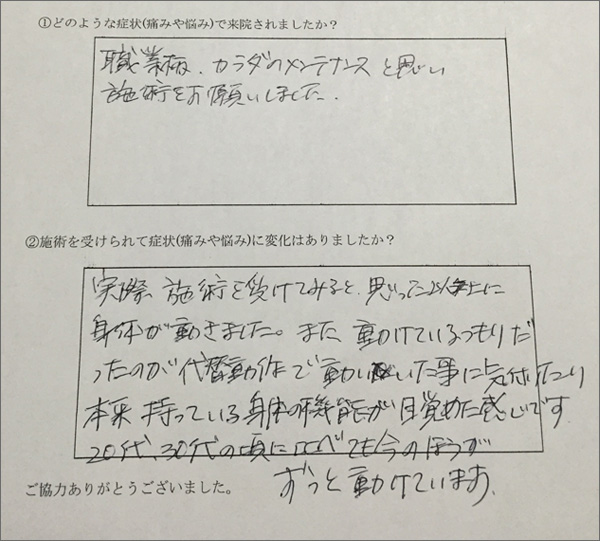 ①どのような症状(痛みや悩み)で来院されましたか？
職業柄、カラダのメンテナンスと思い
施術をお願いしました。
②施術を受けられて症状(痛みや悩み)に変化はありましたか？
実際施術を受けてみると、思った以上に
身体が動きました。また動けているつもりだ
ったのが代替動作で動いていた事に気付いたり
本来持っている身体の機能が目覚めた感じです
20代、30代の頃に比べても今のほうが
ずっと動けています。
ご協力ありがとうございました。